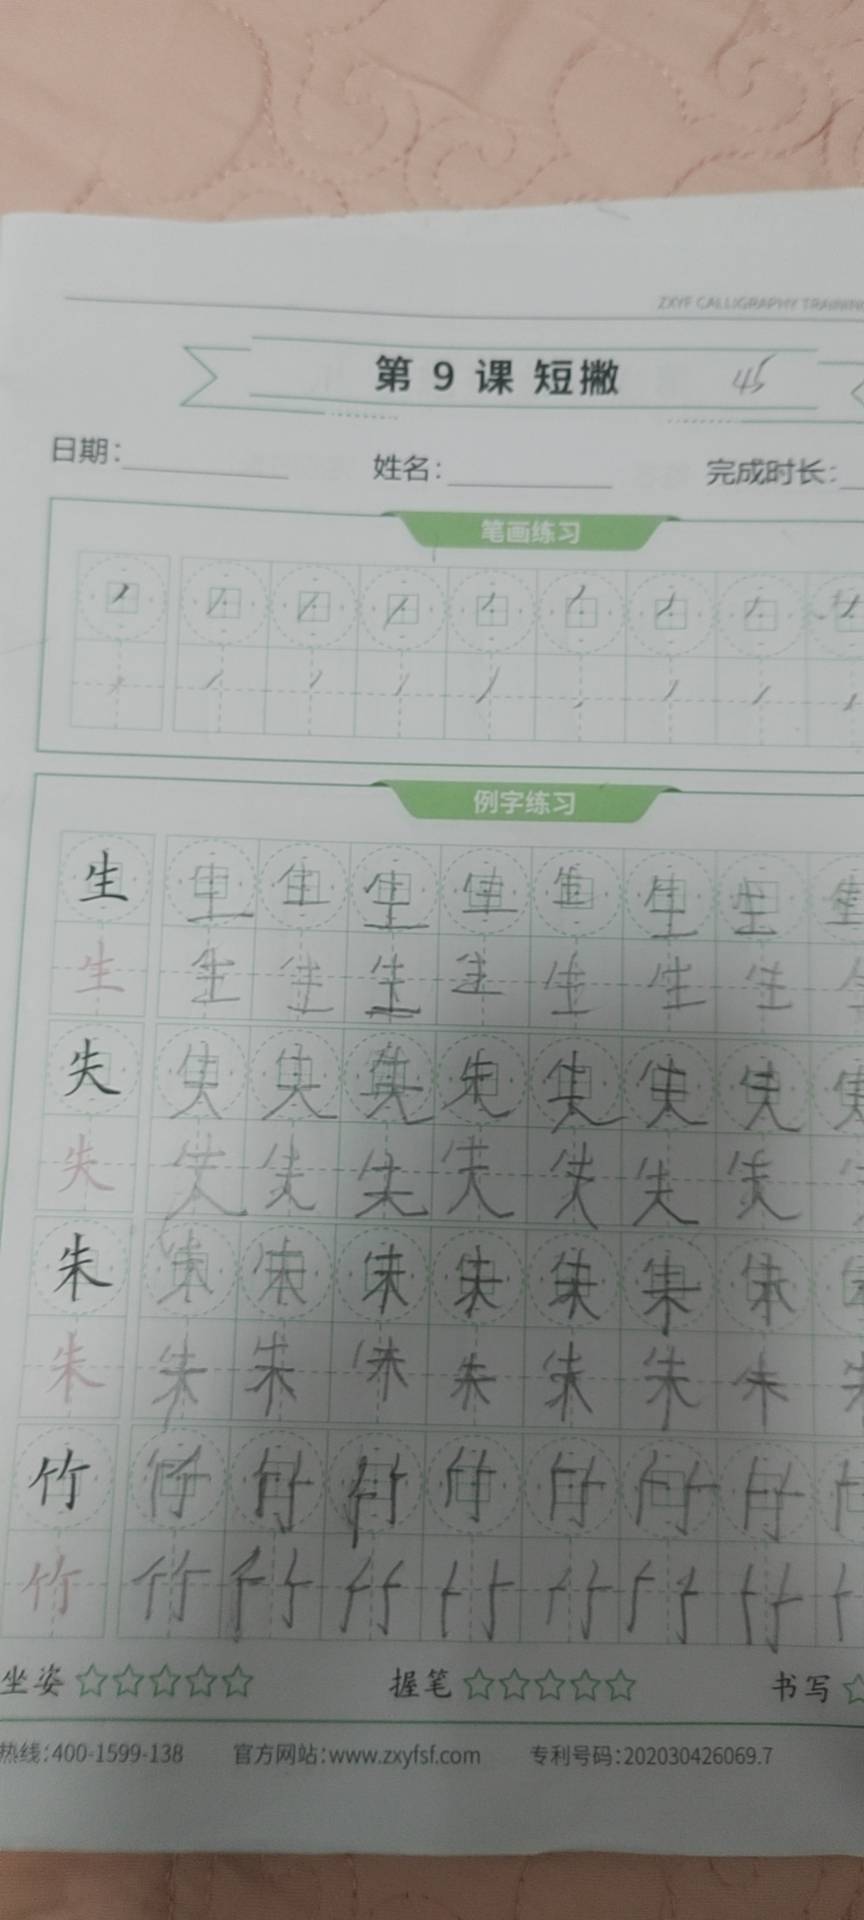 ZXYF CALLIGRAPHY TRAINING
第 9 课 短撇 45
日期： 姓名： 完成时长：
笔画练习
例字练习
生 生 生 生 生 生 生 生 生
生 生 生 生 生 生 生 生 生
失 失 失 失 失 失 失 失 失
失 失 失 失 失 失 失 失
朱 朱 朱 朱 朱 朱 朱 朱
朱 朱 朱 朱 朱 朱 朱 朱 朱
竹 竹 竹 竹 竹 竹 竹 竹
竹 竹 竹 竹 竹 竹 竹 竹
坐姿 ☆☆☆☆☆ 握笔 ☆☆☆☆☆ 书写 ☆
热线：400-1599-138 官方网站：www.zxyfsf.com 专利号码：202030426069.7